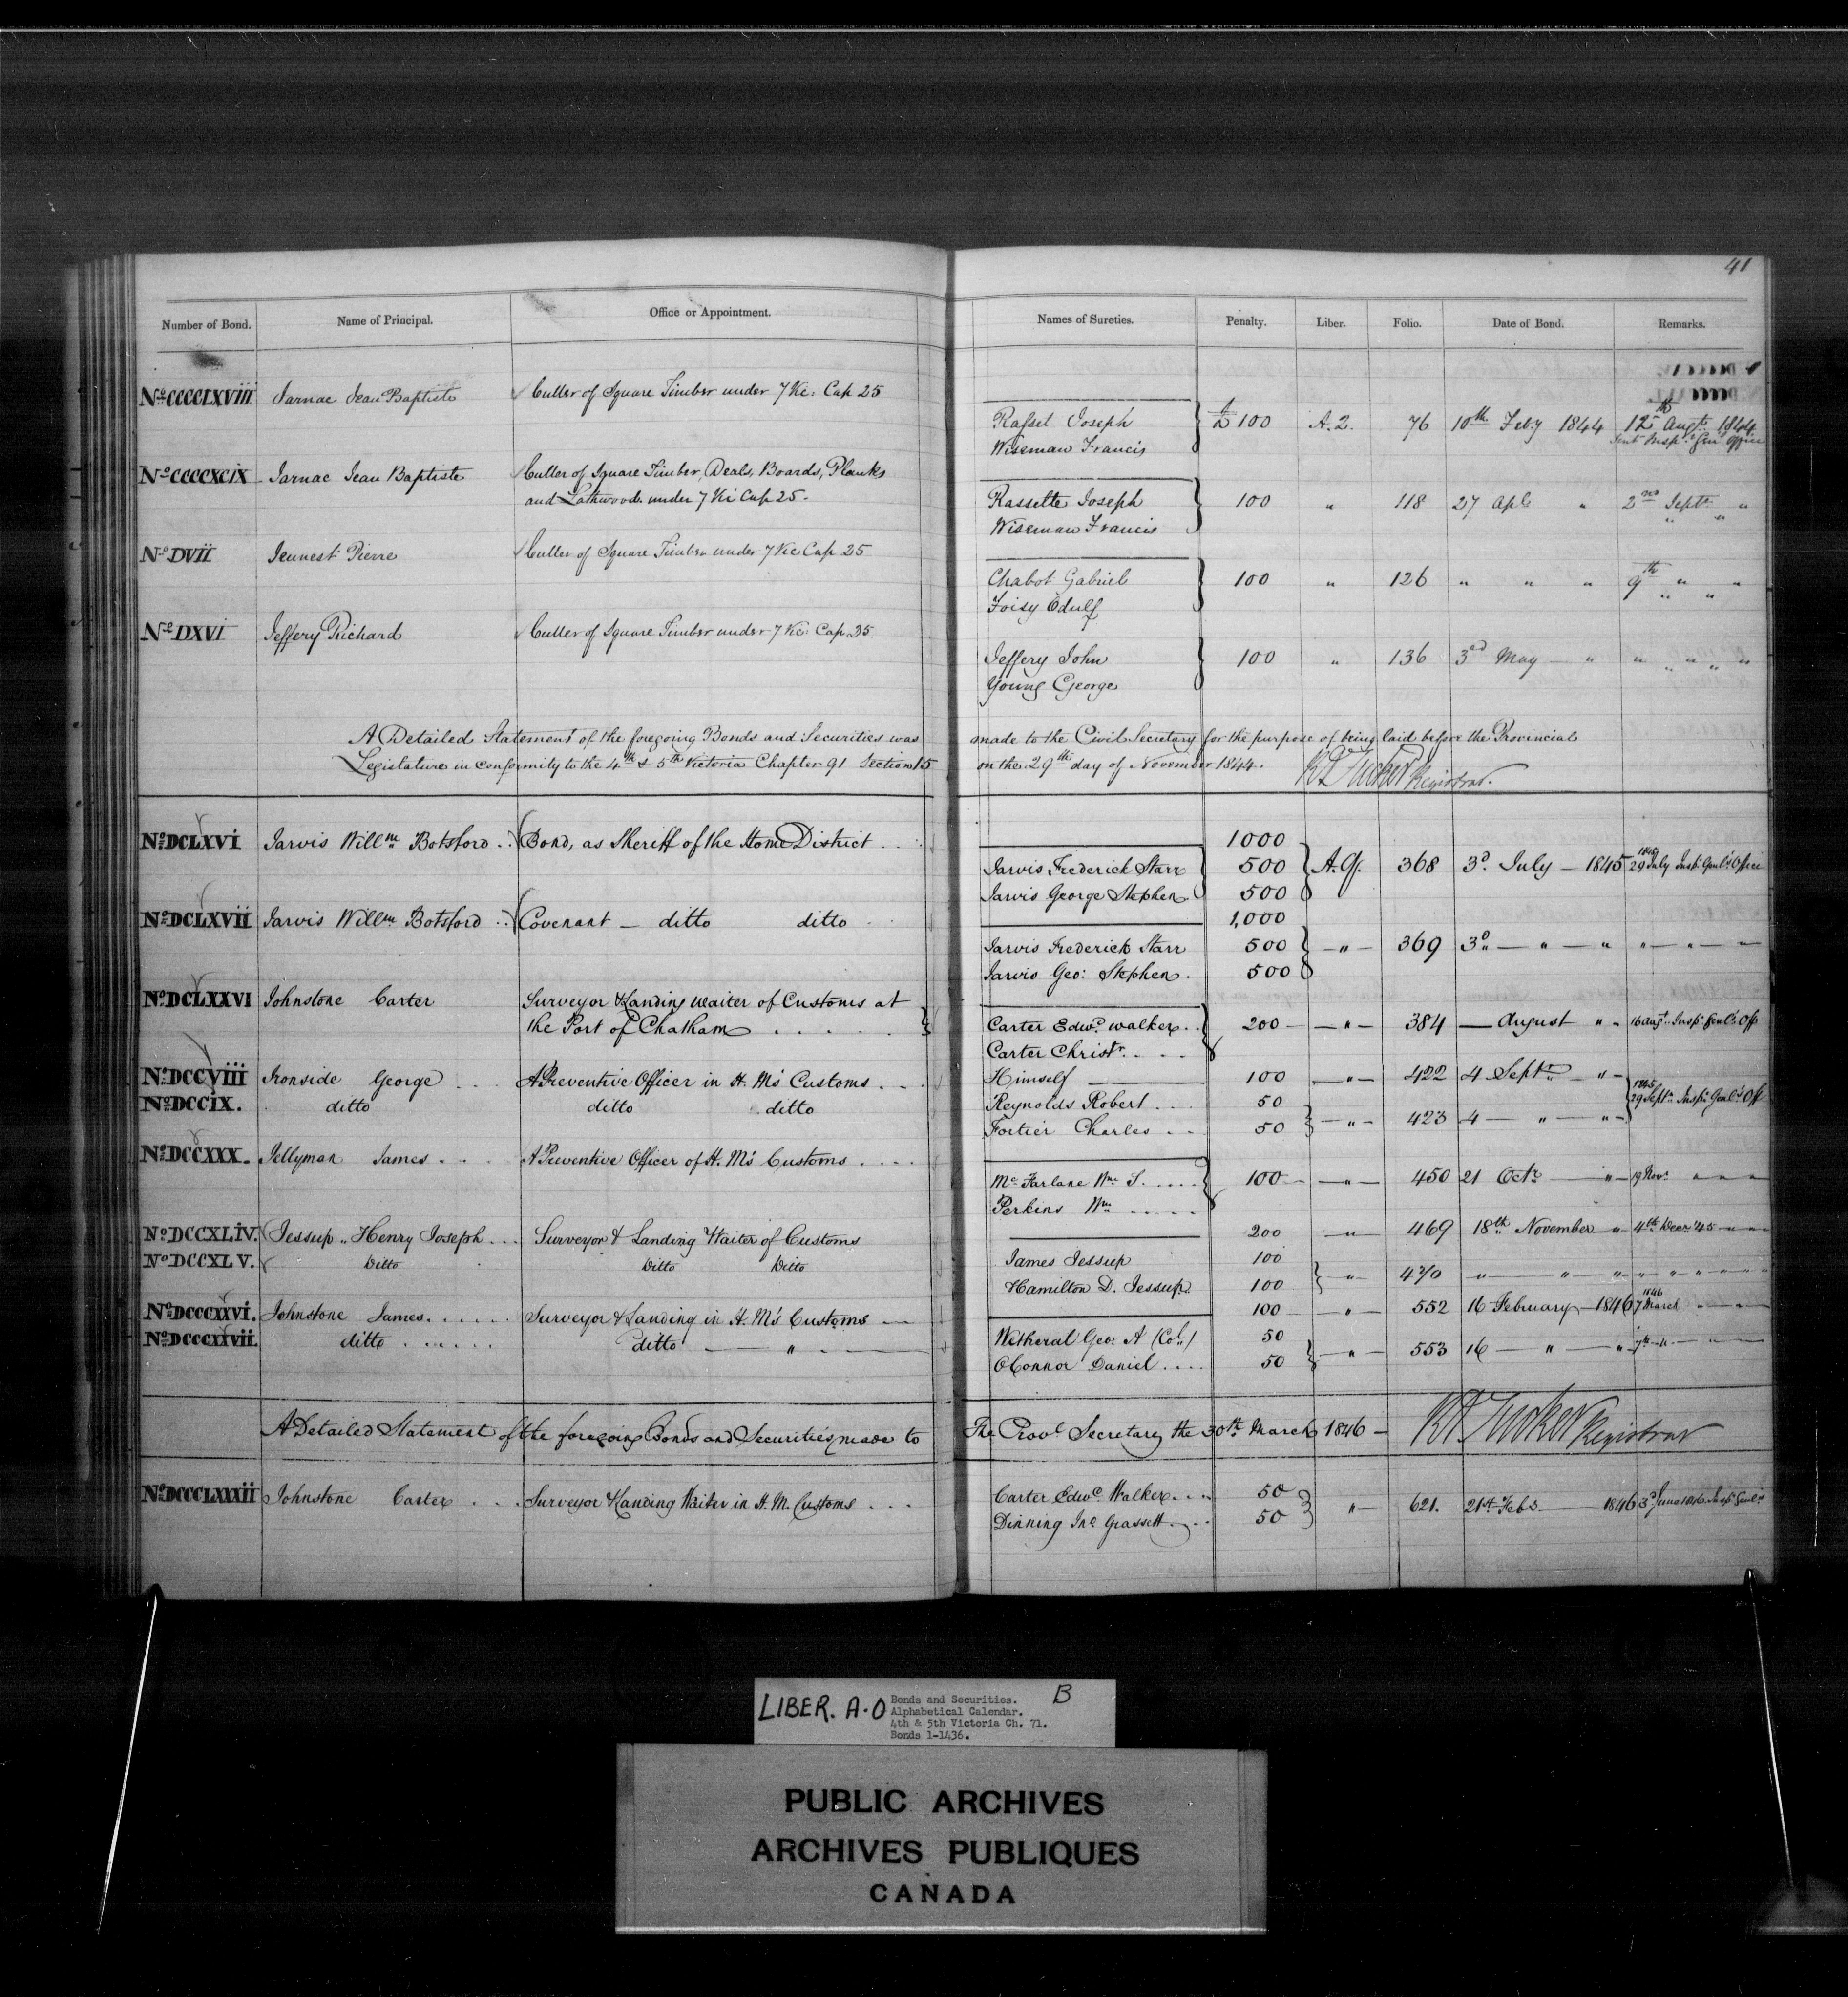 41
Number of Bond. Name of Principal. Office or Appointment. Names of Sureties. Penalty. Liber. Folio. Date of Bond. Remarks.
No CCCCLXVIII Jarnac Jean Baptiste Culler of Square Timber under 7 Vic: Cap 25
Rassel Joseph £100 A.2. 76 10th Feby 1844 12th Augt. 1844
Wiseman Francis Sent Insp. Genl Office
No CCCCXCIX Jarnac Jean Baptiste Culler of Square Timber, Deals, Boards, Planks
and Lathwood. under 7 Vic Cap 25.
Rassette Joseph 100 " 118 27 Apl " 2nd Septr "
Wiseman Francis " "
No DVII Jeunest Pierre Culler of Square Timber under 7 Vic Cap 25
Chabot Gabriel 100 " 126 " " " 9th " "
Foisy Edulf " "
No DXVI Jeffery Richard Culler of Square Timber under 7 Vic: Cap 25.
Jeffery John 100 " 136 3rd May " " " " "
Young George
A Detailed Statement of the foregoing Bonds and Securities was made to the Civil Secretary for the purpose of being laid before the Provincial
Legislature in conformity to the 4th & 5th Victoria Chapter 91 Section 15 on the 29th day of November 1844. RA Tucker Registrar.
No DCLXVI Jarvis Willm Botsford .. Bond, as Sheriff of the Home District .. 1000
Jarvis Frederick Starr 500 368 3d. July — 1845 1845 29 July Insp. Genl's Office
Jarvis George Stephen. 500
No DCLXVII Jarvis Willm Botsford .. Covenant — ditto ditto 1,000
Jarvis Frederick Starr 500 — " — 369 3d — " — " " — " — "
Jarvis Geo: Stephen. 500
No DCLXXVI Johnstone Carter Surveyor & Landing Waiter of Customs at
the Port of Chatham . . . . .
Carter Edwd. Walker.. 200 — — " — 384 — August " - 16 Augt. Insp. Genl's Off
Carter Christr. . . .
No DCCVIII Ironside George . . . A Preventive Officer in H. M's Customs . . . Himself 100 — " — 422 4 Septr. — " —
No DCCIX. ditto ditto ditto Reynolds Robert . . . 50 1845 29 Septr. Insp. Genl's Off
Fortier Charles . . 50 — " — 423 4 — " — " —
No DCCXXX. Jellyman James . . . A Preventive Officer of H. M's Customs . . . .
McFarlane Wm. S. . . . . 100 — — " — 450 21 Octr. — " — 19 Novr. " " "
Perkins Wm . . . . .
No DCCXLIV. Jessup „ Henry Joseph . . . Surveyor & Landing Waiter of Customs 200 — " — 469 18th November — " — 4th Decr. '45 — " — "
No DCCXLV. Ditto Ditto Ditto James Jessup 100
Hamilton D. Jessup. 100 — " — 470 " " " " " " " "
No DCCCXXVI. Johnstone James. . . . . . Surveyor & Landing in H. M's Customs — 100 — " — 552 16 February — 1846 1846 7 March " — "
No DCCCXXVII. ditto . . . . . . ditto — " — Wetheral Geo: A (Col.) 50
OConnor Daniel . . . . 50 — " — 553 16 — " — " 7th " — " — "
A Detailed Statement of the foregoing Bonds and Securities, made to The Provl Secretary the 30th March 1846 — RA Tucker Registrar
No DCCCLXXXII Johnstone Carter . . . . Surveyor & Landing Waiter in H. M. Customs . . .
Carter Edwd. Walker. . . . 50 " — 621. 21st Feb — 1846 3d June 1846. Insp. Genl's
Dinning Jno. Grassett . . . 50
LIBER. A.O B
Bonds and Securities.
Alphabetical Calendar.
4th & 5th Victoria Ch. 71.
Bonds 1-1436.
PUBLIC ARCHIVES
ARCHIVES PUBLIQUES
CANADA